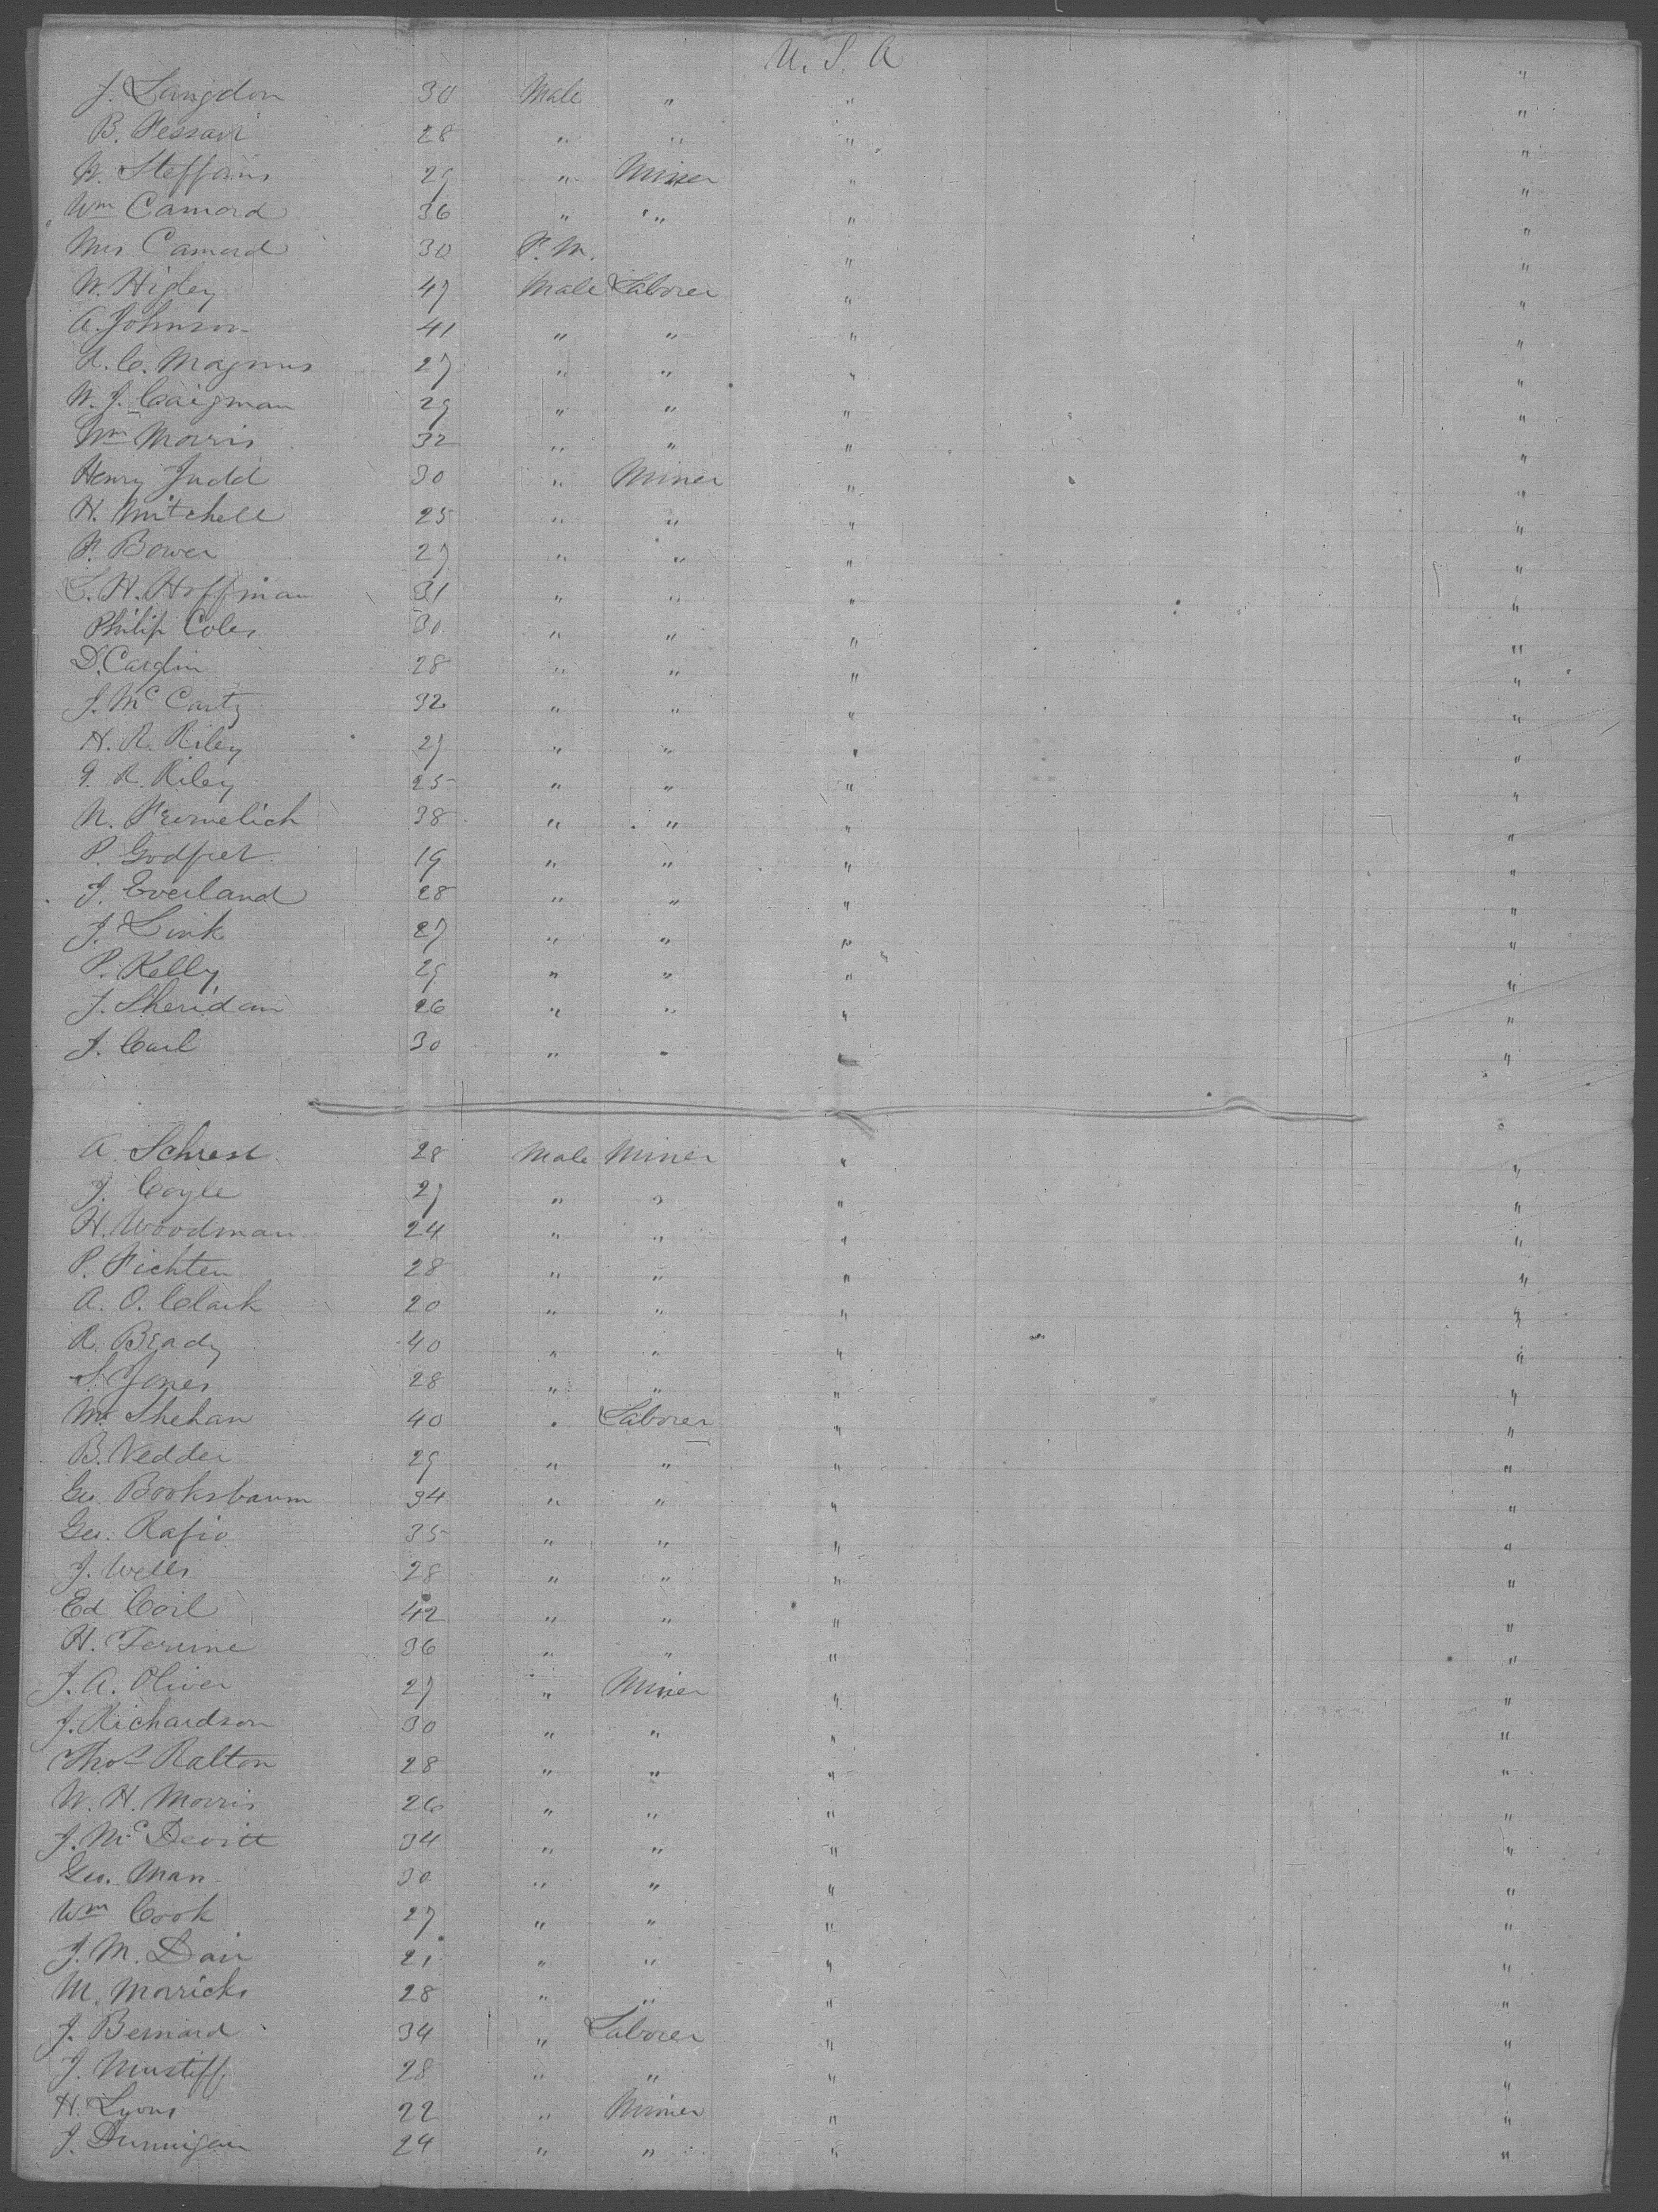 U. S. A "
J. Langdon 30 Male " " "
B. Pessavi 28 " " " "
W. Steffains 29 " Miner " "
Wm Camord 36 " " " "
Mrs Camord 30 F. M. " "
W. Higley 47 Male Laborer " "
A. Johnson 41 " " " "
A. C. Magnus 27 " " " "
W. J. Caigman 29 " " " "
Wm Morris 32 " " " "
Henry Judd 30 " Miner " "
H. Mitchell 25 " " " "
P. Bower 27 " " " "
L. H. Hoffman 31 " " " "
Philip Coles 30 " " " "
D. Carglin 28 " " " "
J. McCarty 32 " " " "
H. R. Riley 27 " " " "
G. R. Riley 25 " " " "
N. Fromelich 38 " " " "
P. Godfret 19 " " " "
J. Everland 28 " " " "
J. Link 27 " " " "
P. Kelly 29 " " " "
J. Sheridan 26 " " " "
J. Carl 30 " " "
A. Schrest 28 Male Miner " "
J. Coyle 27 " " " "
H. Woodman 24 " " " "
P. Fichten 28 " " " "
A. O. Clark 20 " " " "
R. Brady 40 " " " "
S. Jones 28 " " " "
M. Shehan 40 " Laborer " "
B. Vedder 29 " " " "
Geo. Booksbaum 34 " " " "
Geo. Rafio 35 " " " "
J. Wells 28 " " " "
Ed Coil 42 " " " "
H. Ferrine 36 " " " "
J. A. Oliver 27 " Miner " "
J. Richardson 30 " " " "
Thos Ralton 28 " " " "
W. H. Morris 26 " " " "
J. McDevitt 34 " " " "
Geo. Man 30 " " " "
Wm Cook 27 " " " "
J. M. Dair 21 " " " "
M. Morricks 28 " " " "
J. Bernard 34 " Laborer " "
J. Mustiff 28 " " " "
H. Lyons 22 " Miner " "
J. Dunnigan 24 " " " "